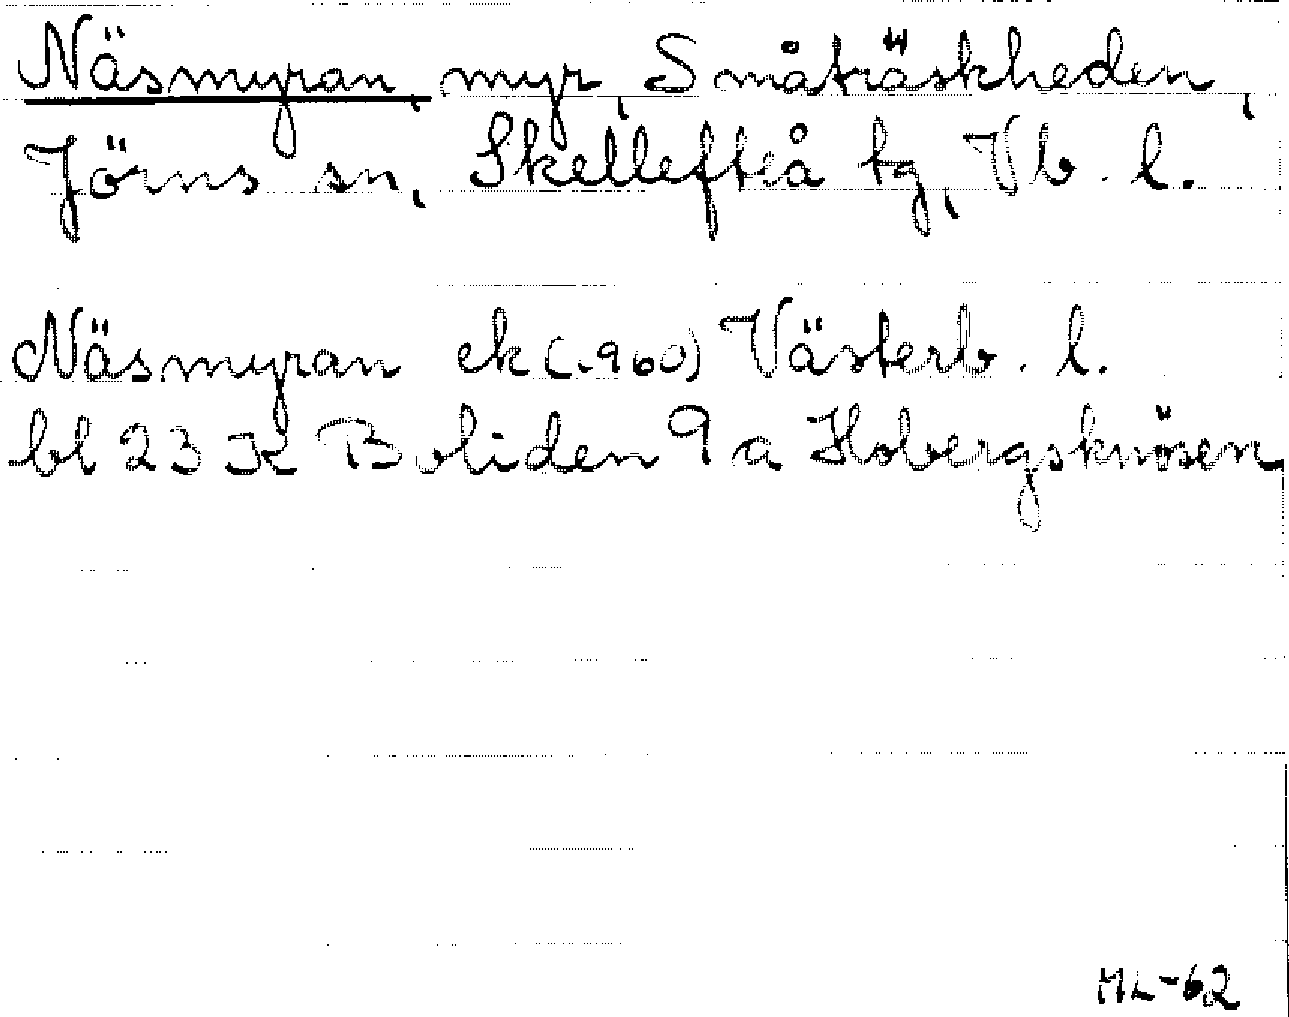 Näsmyran, myr, Småträskheden,
Jörns sn, Skellefteå tg, Vb. l.
Näsmyran ek (1960) Västerb. l.
bl 23 K Boliden 9 a Hobergsknösen
ML-62